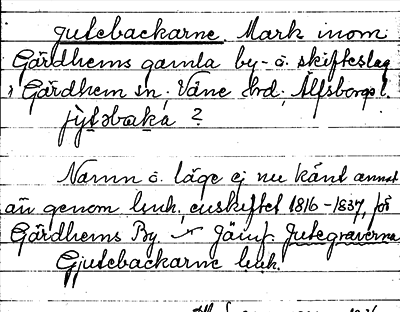 Jutebackarne. Mark inom
Gärdhems gamla by- o. skifteslag
i Gärdhem sn, Väne hd, Älfsborgs l.
jÿtəbaka ?
Namn o. läge ej nu känt annat
än genom lmh. enskiftet 1816-1837, för
Gärdhems By. Jämf. Jutegraverna
Gjutebackarne lmh.